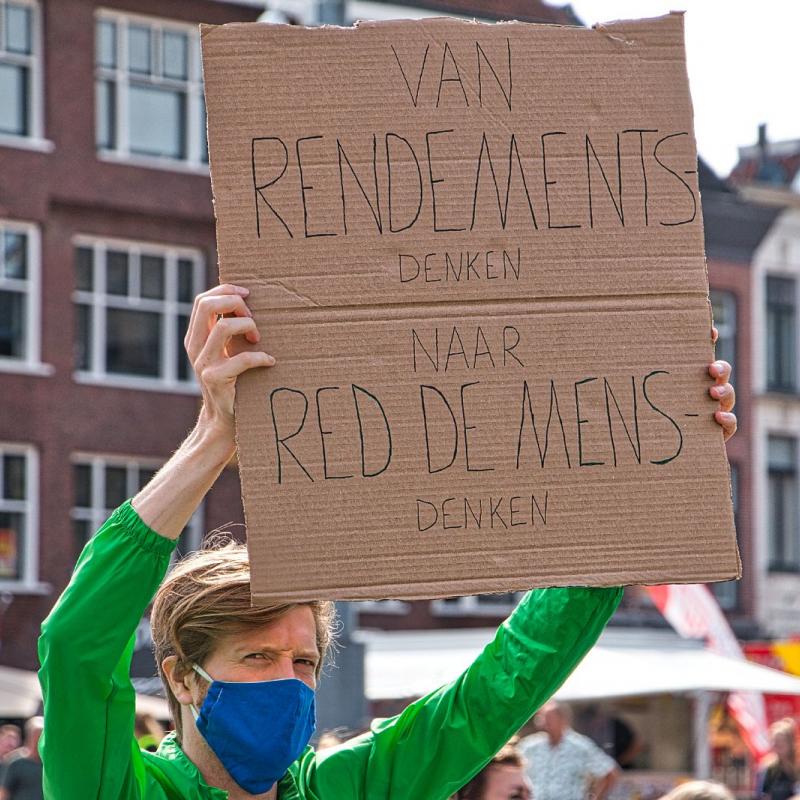 VAN
RENDEMENTS-
DENKEN
NAAR
RED DE MENS-
DENKEN